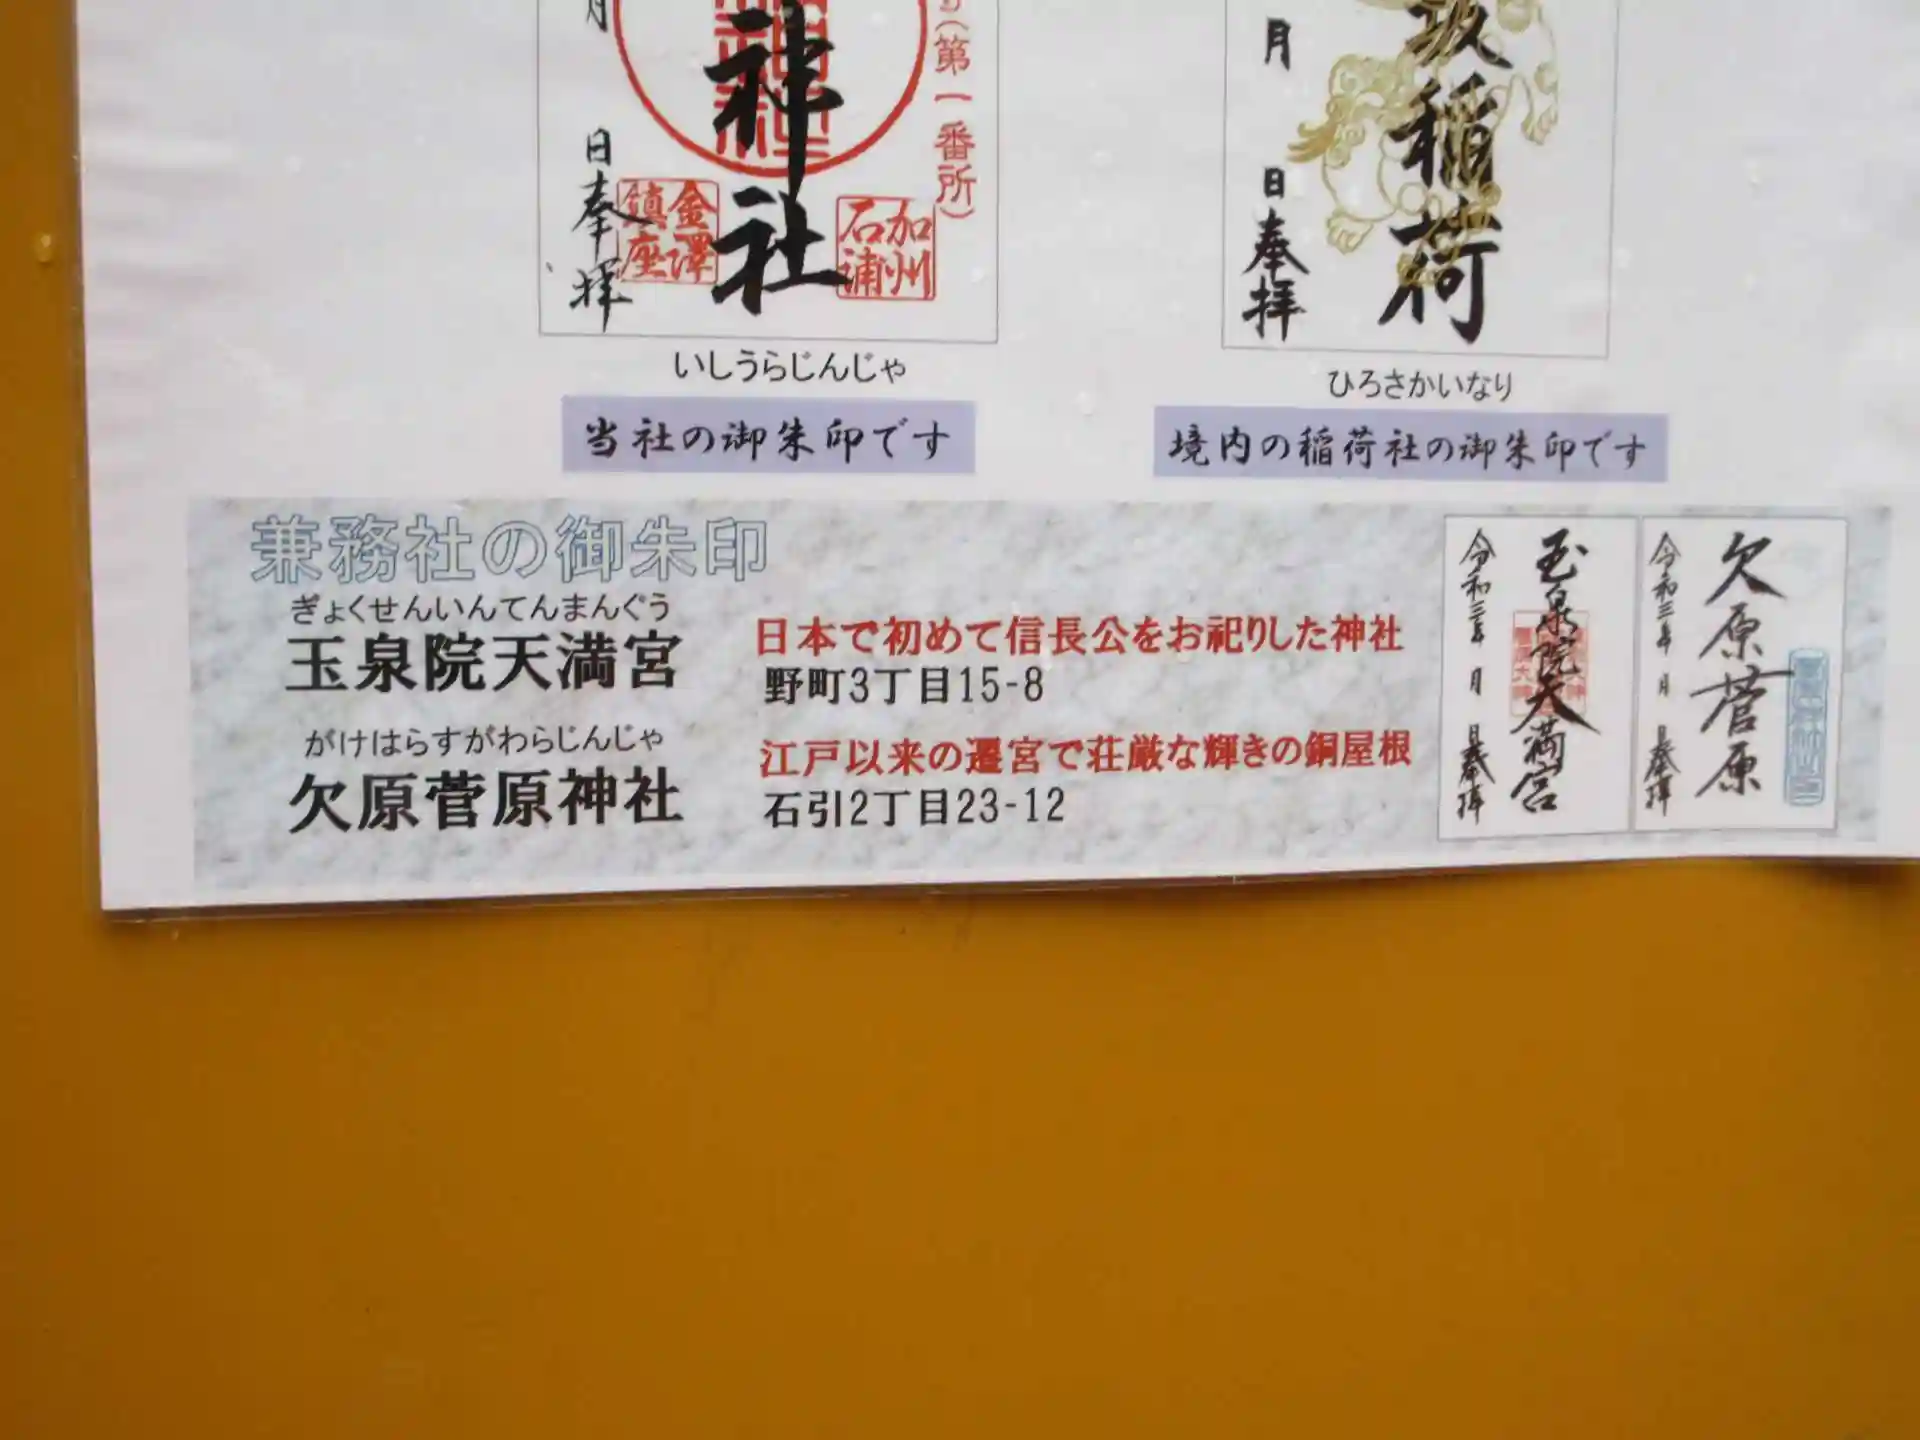 月
日奉拝
神社
(第一番所)
金澤
鎮座
加州
石浦
月
日奉拝
坂稲荷
いしうらじんじゃ
ひろさかいなり
当社の御朱印です
境内の稲荷社の御朱印です
兼務社の御朱印
ぎょくせんいんてんまんぐう
玉泉院天満宮
日本で初めて信長公をお祀りした神社
野町3丁目15-8
がけはらすがわらじんじゃ
欠原菅原神社
江戸以来の遷宮で荘厳な輝きの銅屋根
石引2丁目23-12
玉泉院天満宮
令和三年 月 日奉拝
欠原菅原
令和三年 月 日奉拝